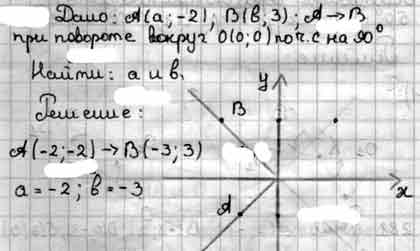 Дано: A(a; -2); B(в; 3); A → B
при повороте вокруг O(0; 0) по ч.с на 90°
Найти: a и в.
Решение:
A(-2; -2) → B(-3; 3)
a = -2; в = -3
y
B
A
x